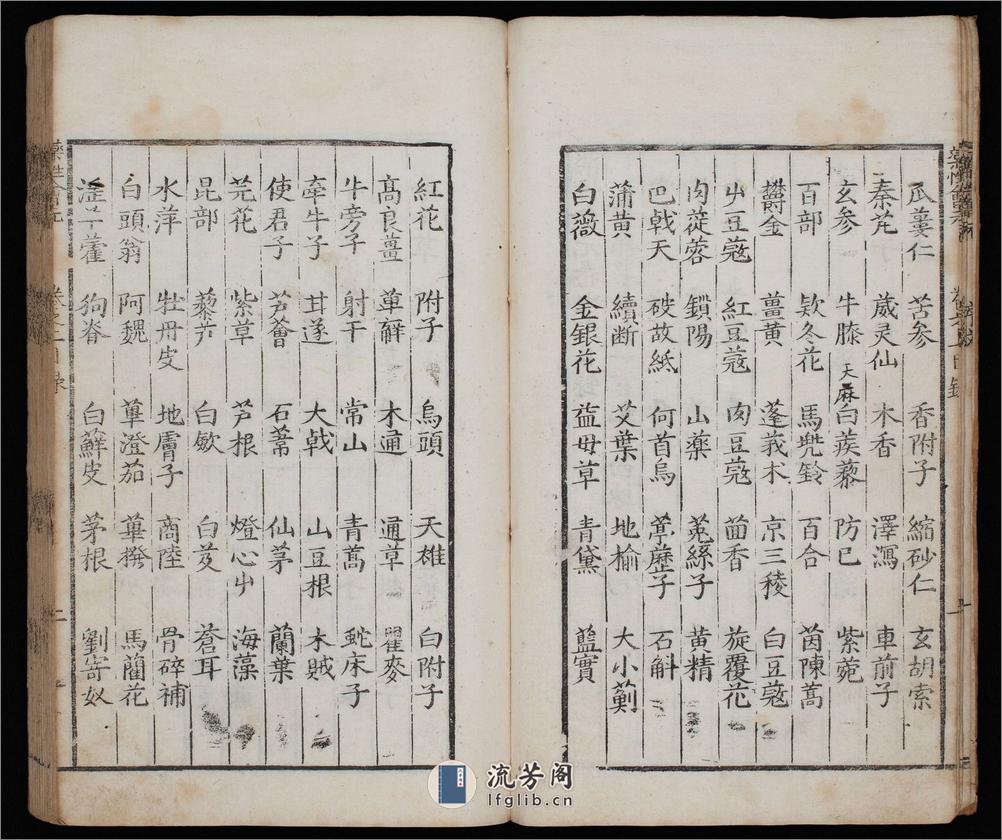 瓜蔞仁 苦參 香附子 縮砂仁 玄胡索
秦艽 葳灵仙 木香 澤瀉 車前子
玄参 牛膝 天麻 白蒺藜 防已 紫菀
百部 欵冬花 馬兠鈴 百合 茵陳蒿
欝金 薑黃 蓬莪术 京三稜 白豆蔻
屮豆蔻 紅豆蔻 肉豆蔻 茴香 旋覆花
肉蓯蓉 鎖陽 山藥 菟絲子 黃精
巴戟天 破故紙 何首烏 葶藶子 石斛
蒲黃 續断 艾葉 地榆 大小薊
白薇 金銀花 益母草 青黛 藍實
紅花 附子 烏頭 天雄 白附子
高良薑 萆薢 木通 通草 瞿麥
牛旁子 射干 常山 青蒿 蛇床子
牽牛子 甘遂 大戟 山豆根 木賊
使君子 芦薈 石菖 仙茅 蘭葉
芫花 紫草 芦根 燈心屮 海藻
昆部 藜芦 白歛 白芨 蒼耳
水萍 牡丹皮 地膚子 商陸 骨碎補
白頭翁 阿魏 蓽澄茄 蓽撥 馬藺花
淫羊藿 狗脊 白蘚皮 茅根 劉寄奴
流芳阁
lfglib.cn